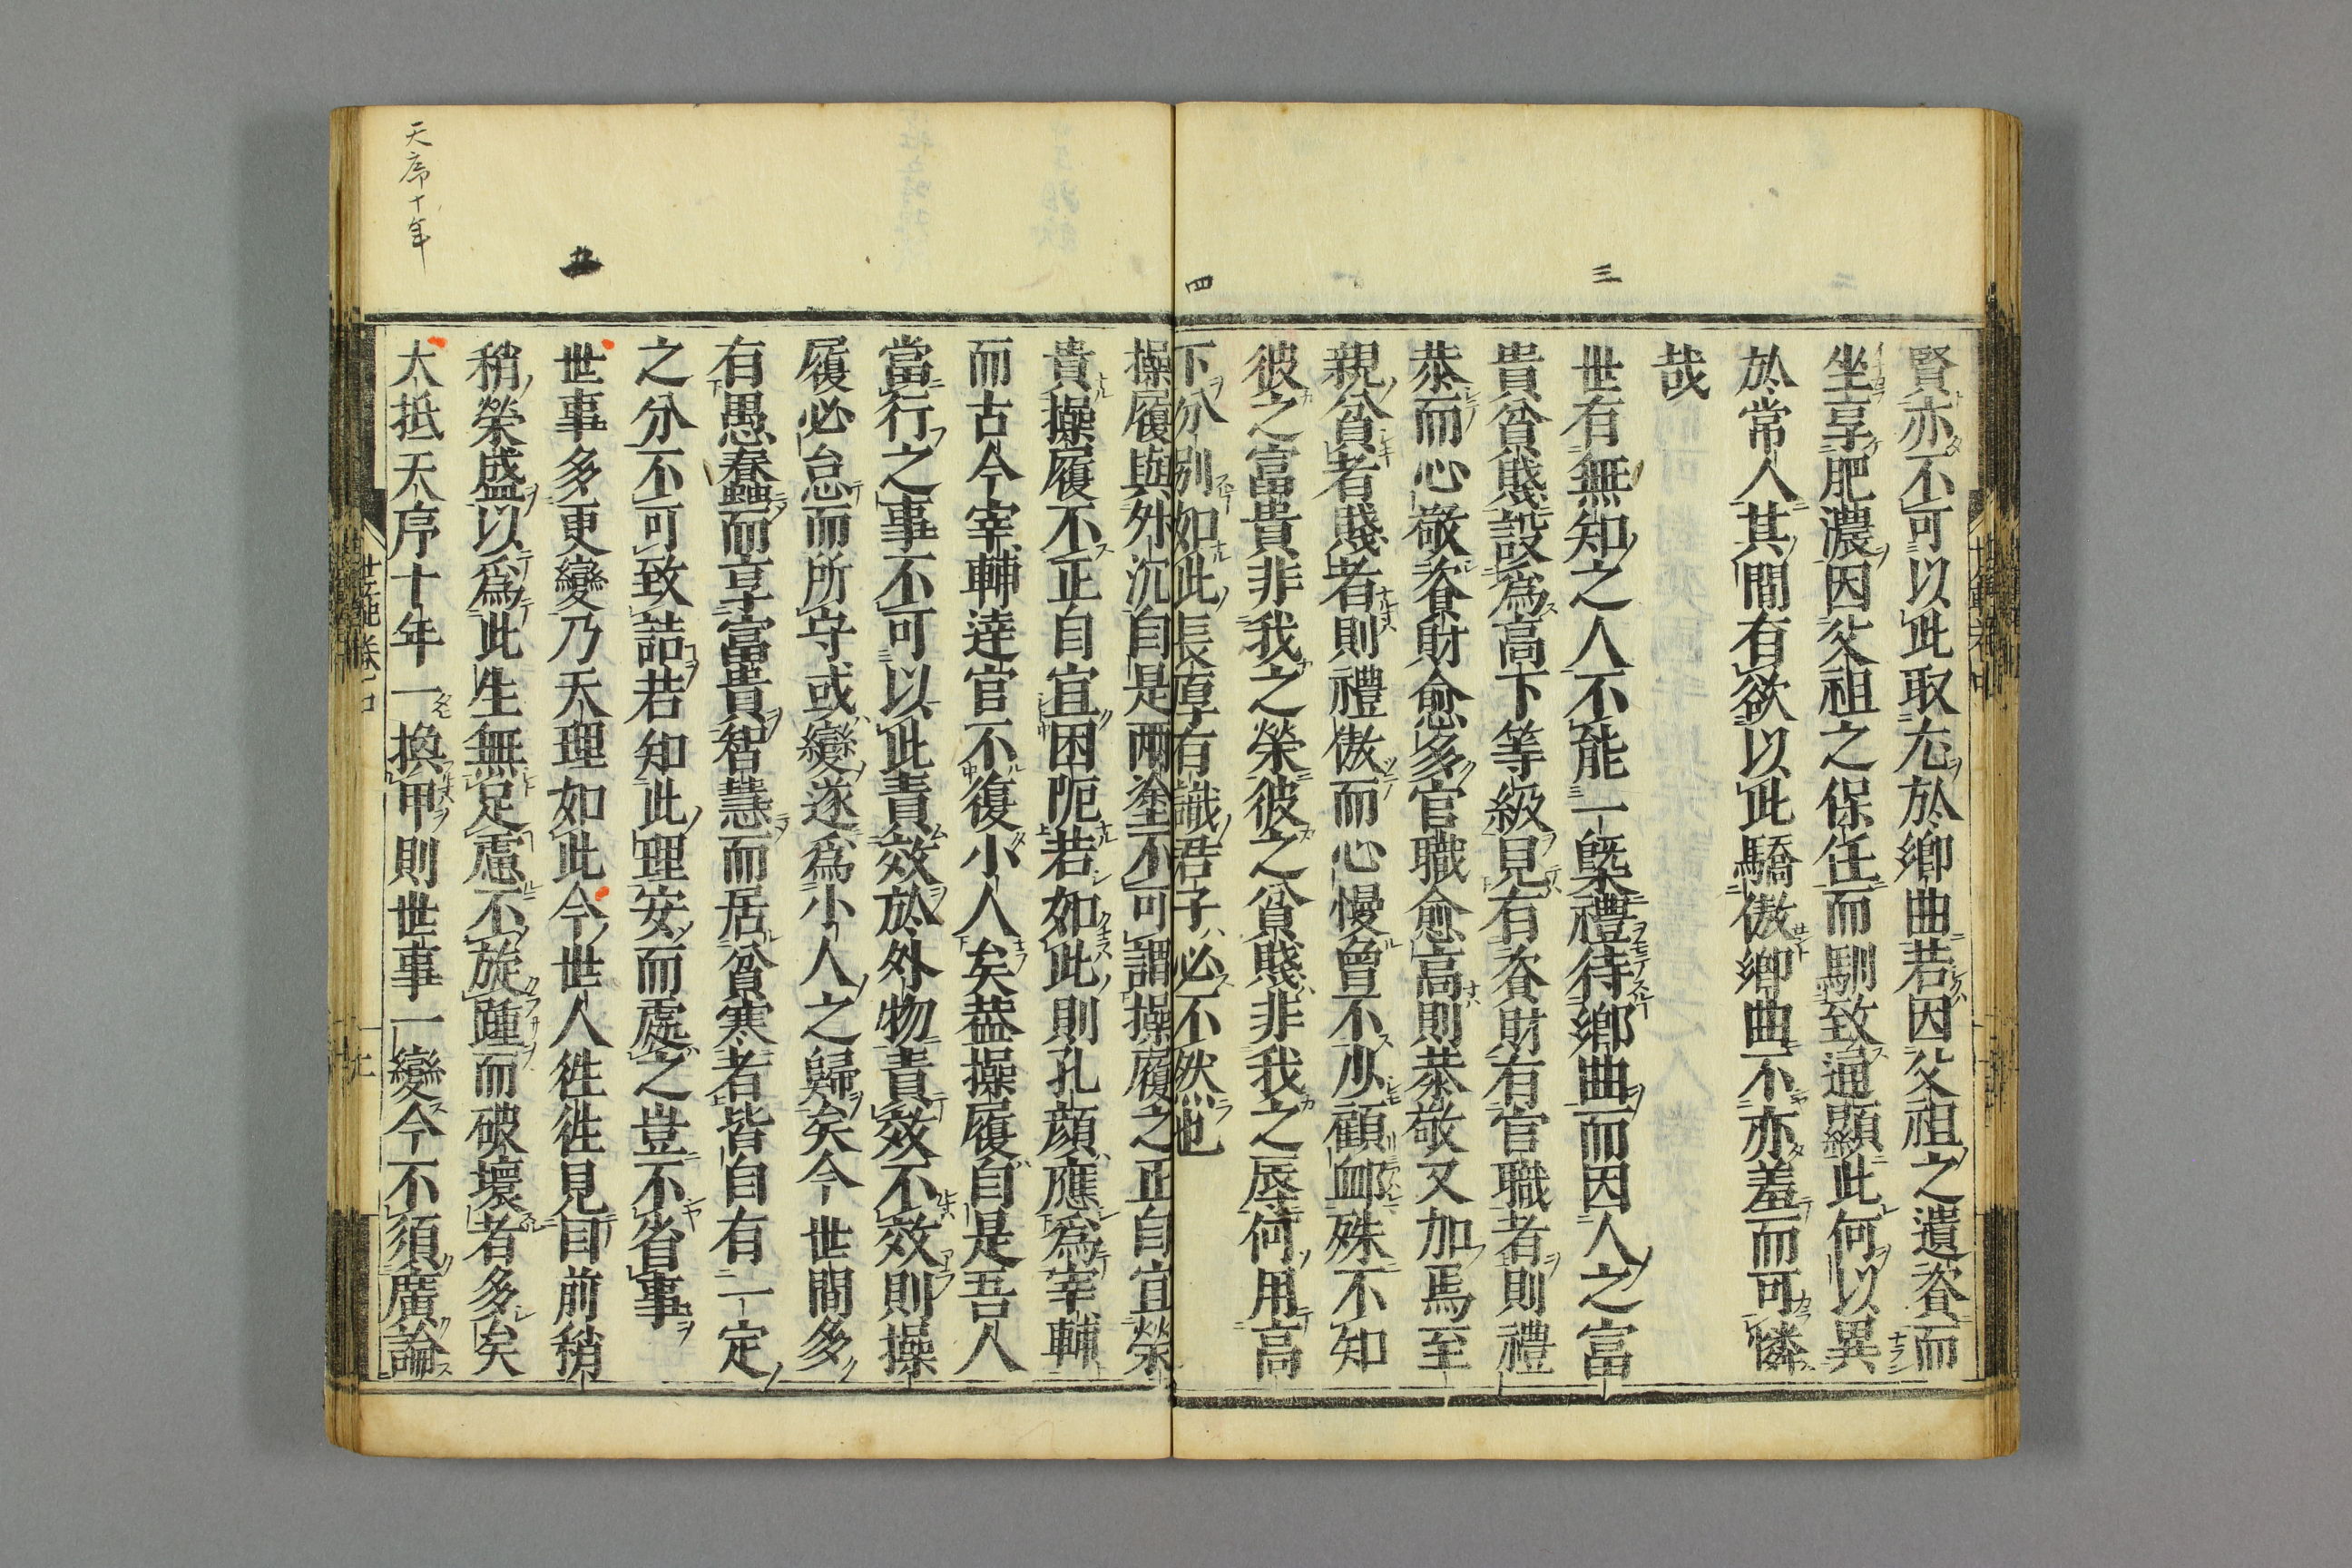 三
四
五
天序十年
賢亦不可以此取尤於鄉曲若因父祖之遺資而
坐享肥濃因父祖之保任而馴致通顯此何以異
於常人其間有欲以此驕傲鄉曲不亦羞而可憐
哉
世有無知之人不能一槩禮待鄉曲而因人之富
貴貧賤設爲高下等級見有資財有官職者則禮
恭而心敬資財愈多官職愈高則恭敬又加焉至
視貧者賤者則禮傲而心慢曾不少顧卹殊不知
彼之富貴非我之榮彼之貧賤非我之辱何用高
下分別如此長厚有識君子必不然也
操履與外沉自是兩塗不可謂操履之正自宜榮
貴操履不正自宜困阨若如此則孔顏應爲宰輔
而古今宰輔達官不復小人矣葢操履自是吾人
當行之事不可以此責效於外物責效不效則操
履必怠而所守或變遂爲小人之歸矣今世間多
有愚蠢而享富貴智慧而居貧寒者皆自有一定
之分不可致詰若知此理安而處之豈不省事
世事多更變乃天理如此今世人徃徃見目前稍
稍榮盛以爲此生無足慮不旋踵而破壞者多矣
大抵天序十年一換甲則世事一變今不須廣論